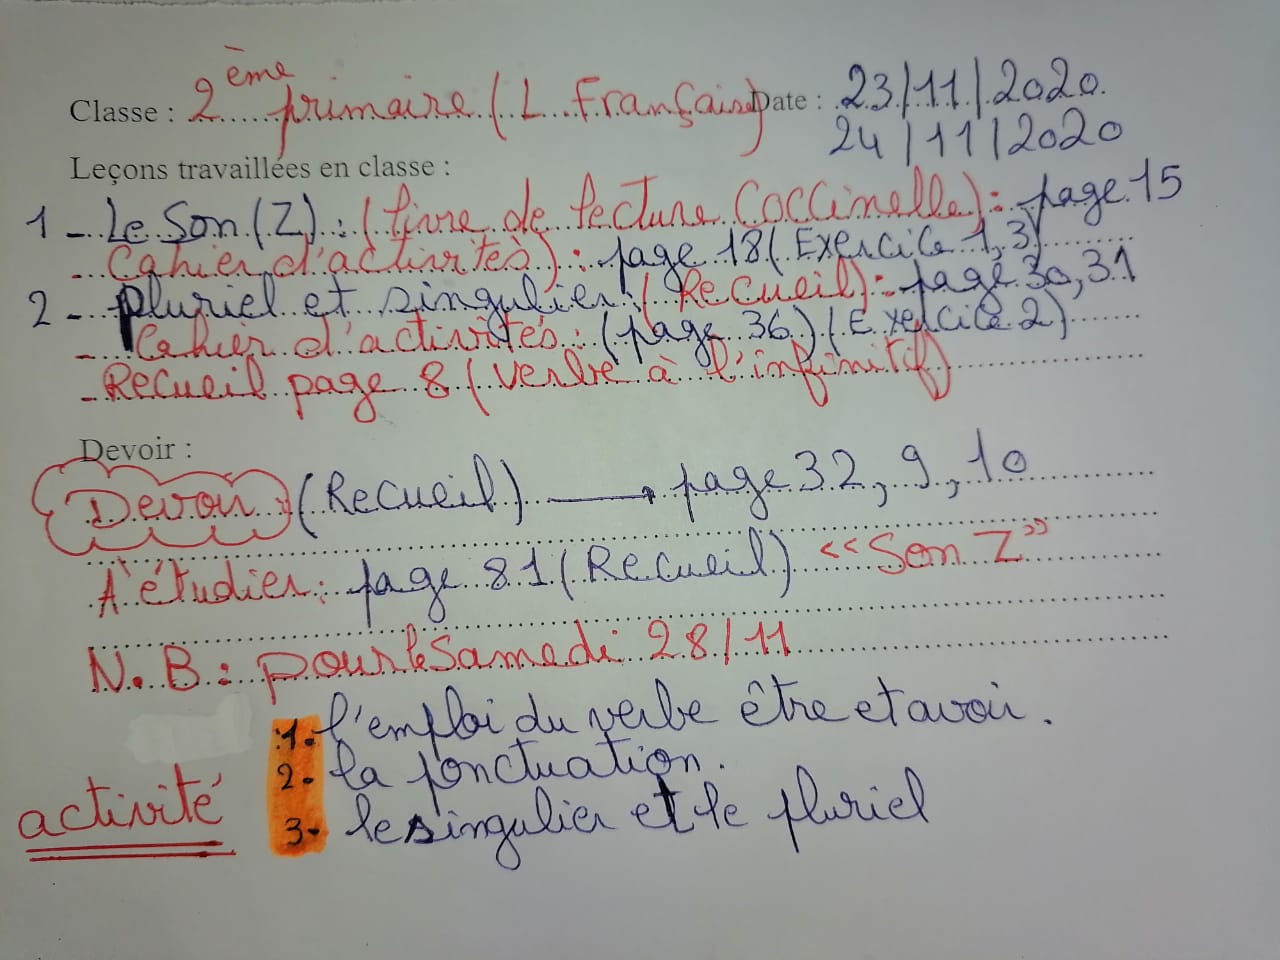 Classe : 2ème primaire (L. Française) Date : 23/11/2020
24/11/2020
Leçons travaillées en classe :
1 - Le Son (Z) : (livre de lecture Coccinelle) : page 15
- Cahier d'activités) : page 18 (Exercice 1, 3)
2 - pluriel et singulier : (Recueil) : page 30, 31
- Cahier d'activités : (page 36) (Exercice 2)
- Recueil page 8 (verbe à l'infinitif)
Devoir :
Devoir : (Recueil) → page 32, 9, 10
A étudier : page 81 (Recueil) «Son Z»
N.B : pour le Samedi 28/11
1. l'emploi du verbe être et avoir.
2. la ponctuation.
activité
3- le singulier et le pluriel